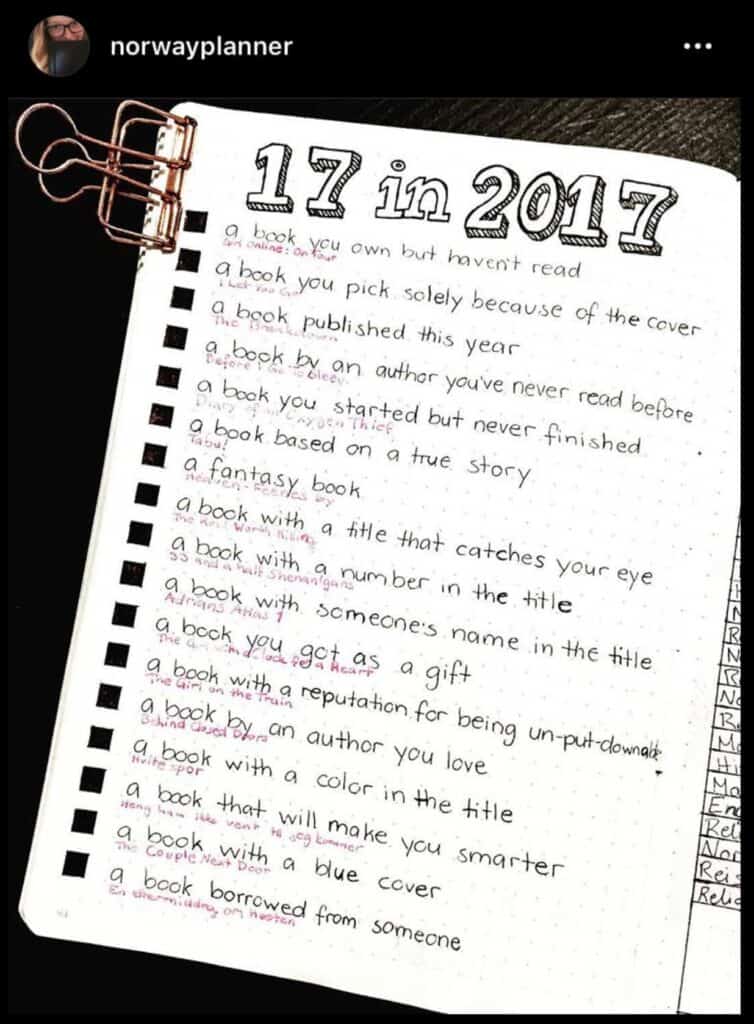 norwayplanner
17 in 2017
a book you own but haven't read
Girl Online: On Tour
a book you pick solely because of the cover
I Let You Go
a book published this year
The Breakdown
a book by an author you've never read before
Before I Go to Sleep
a book you started but never finished
Diary of an Oxygen Thief
a book based on a true story
Tabu!
a fantasy book
Heaven - by
a book with a title that catches your eye
The Kind Worth Killing
a book with a number in the title
33 and a half Shenanigans
a book with someone's name in the title
Adrians Atlas 1
a book you got as a gift
The Girl with a Clock for a Heart
a book with a reputation for being un-put-downable
The Girl on the Train
a book by an author you love
Behind Closed Doors
a book with a color in the title
Hvite spor
a book that will make you smarter
Heng ham ikke vent til jeg kommer
a book with a blue cover
The Couple Next Door
a book borrowed from someone
En ettermiddag om høsten
N
R
N
R
No
R
Mo
Hi
Ma
Eng
Reli
Nor
Reis
Relig